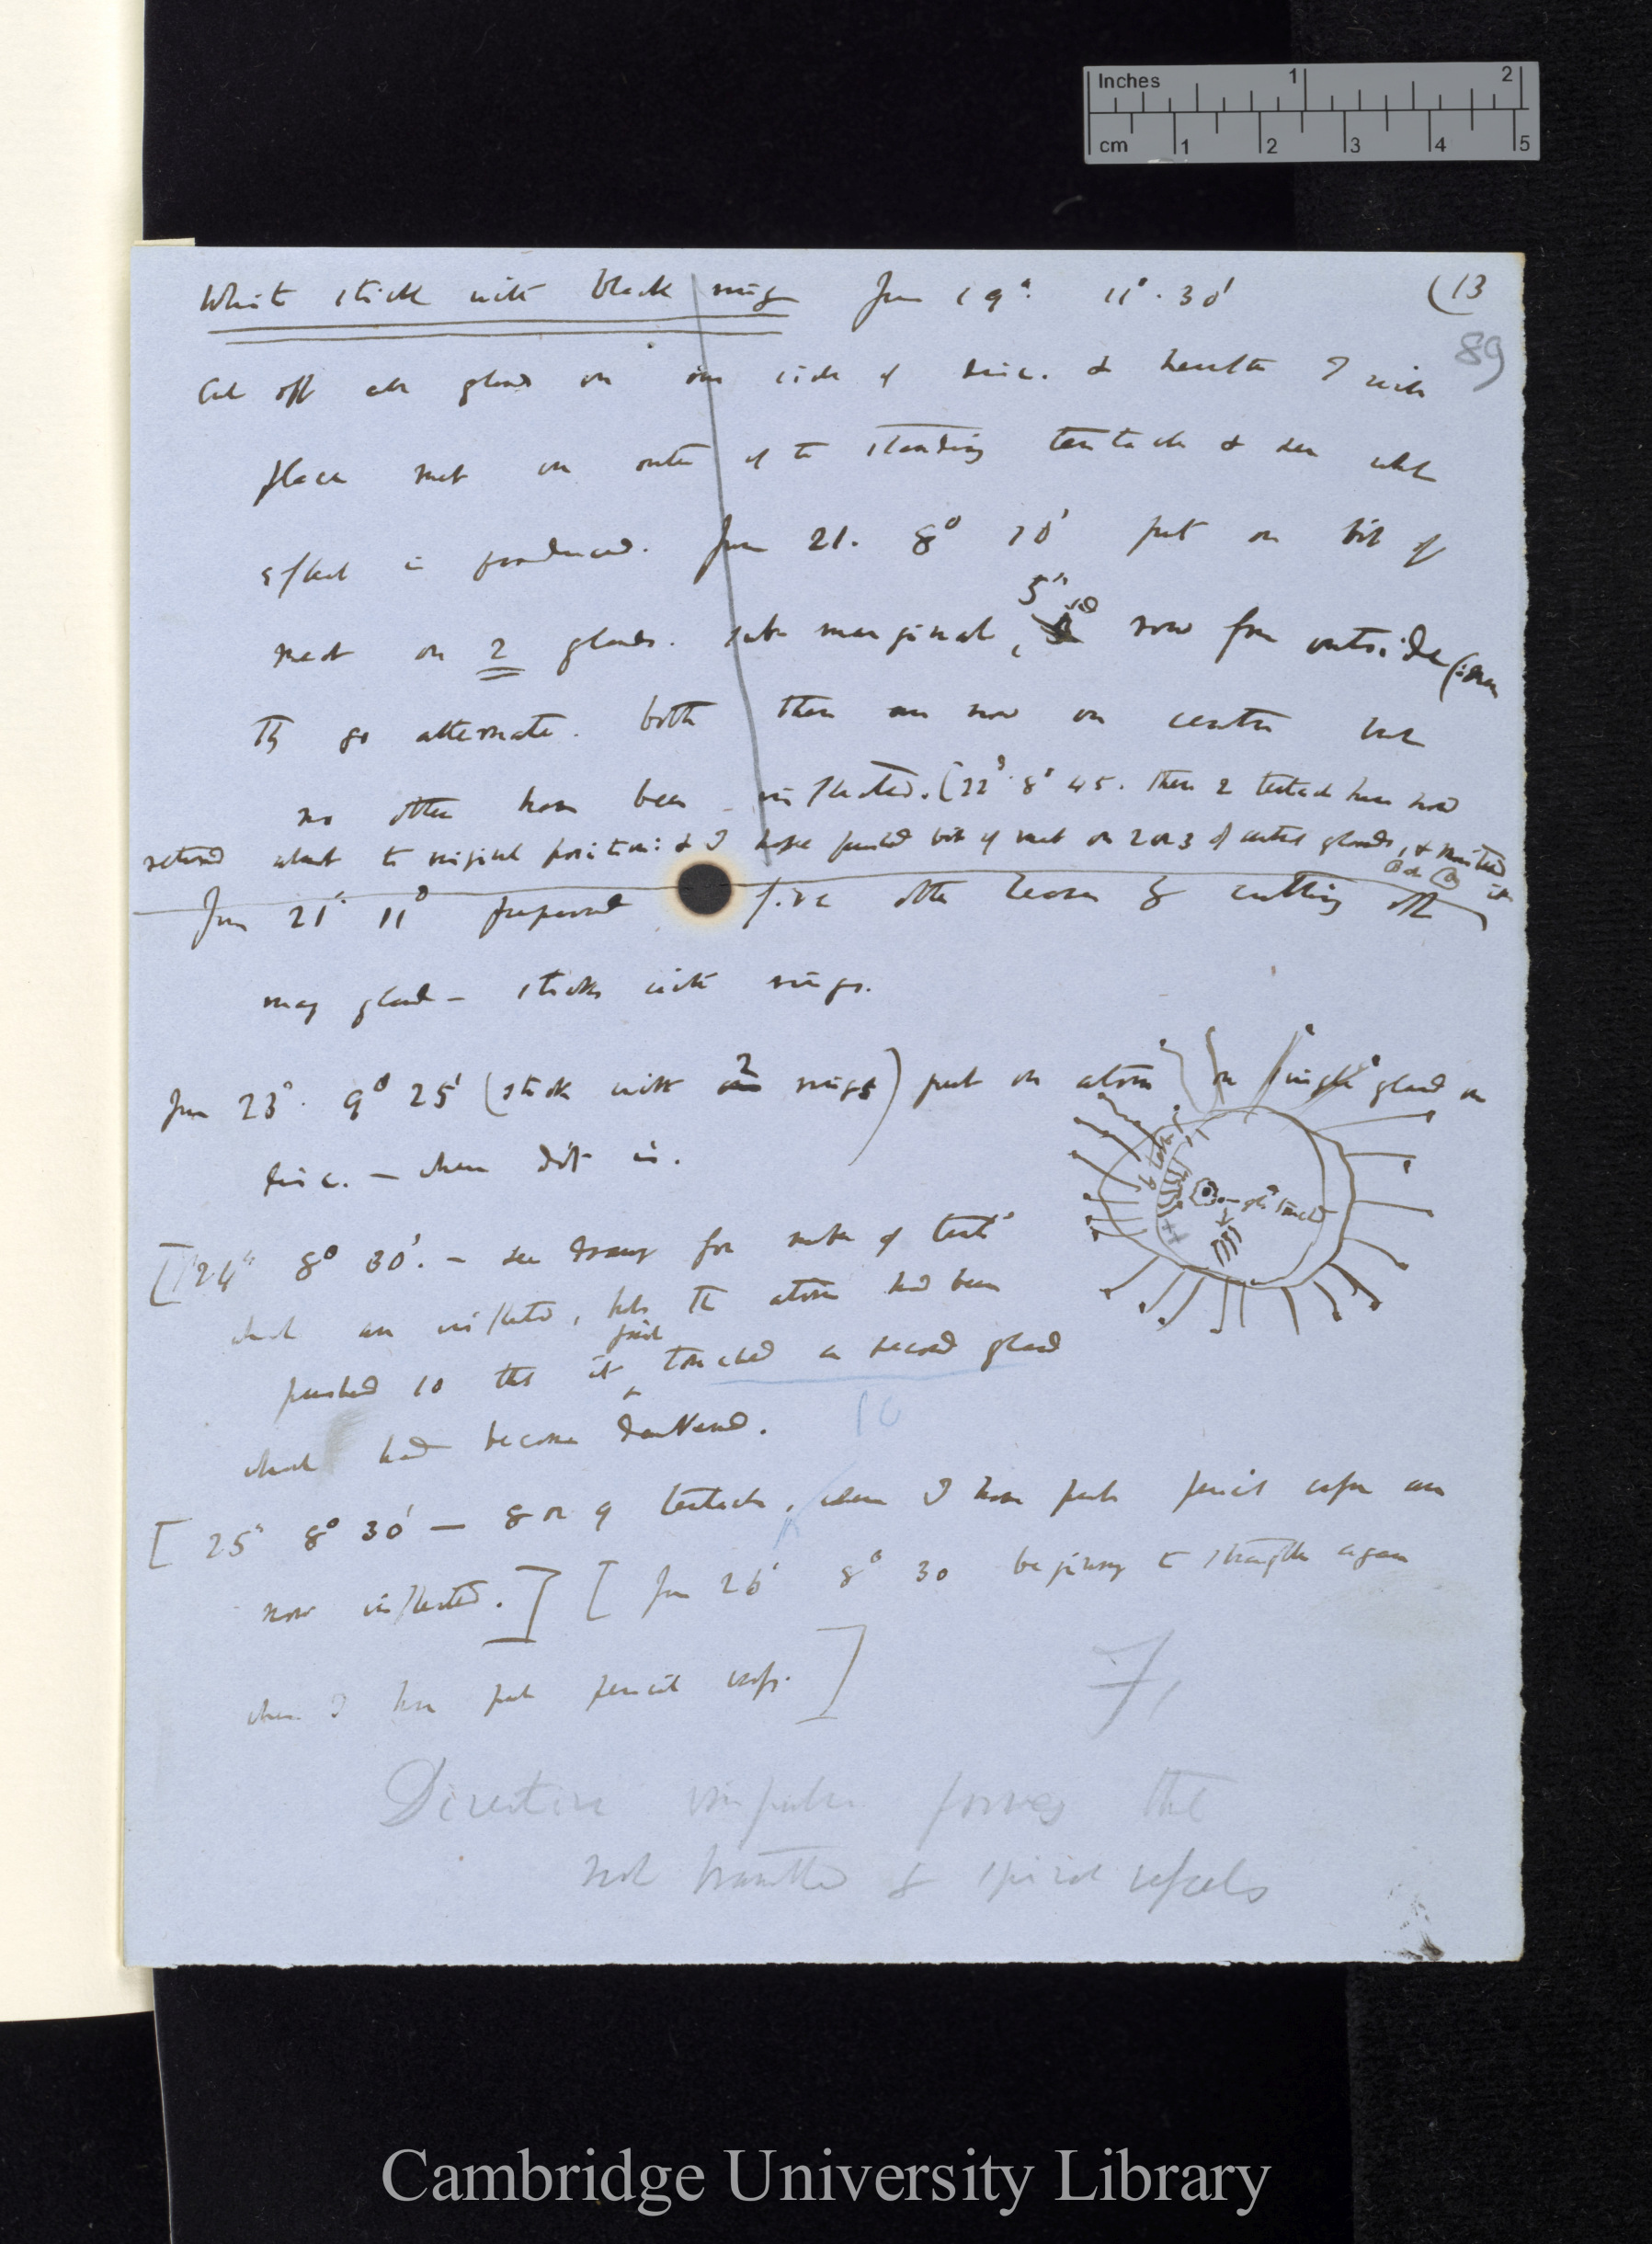 Inches 1 2
cm 1 2 3 4 5
White stick with black ring June 19th. 11° . 30' (13
89
Cut off all glands on one side of disc. & hereafter I will
place meat on outer of the standing tentacles & see what
effect is produced. June 21. 8° 20' put on bit of
meat on 2 glands. sub marginal, 5th row from outside (
They go alternate. both these are now on centre but
no others have been inflected. [22d 8° 45. These 2 tentacles have now
returned almost to original position: & I have pushed bit of meat on 2 or 3 of central glands, & moistened it
June 21st 11° prepared five other leaves by cutting off
many glands — sticks with rings.
June 23d. 9° 25' (stick with 2 rings) put on atom on single gland on
disc. — where dot is.
6 tent
gld touched
[24th 8° 30'. — see drawing for number of tent
which are inflected, but the atom had been
pushed so that it just touched a second gland
10
which had become darkened.
[25th 8° 30' — 8 or 9 tentacles, where I have put pencil cross are
now inflected.] [June 26th 8° 30 beginning to straighten again
where I have put pencil cross.]
7,
Directive impulse proves the
not transmitted by spiral vessels
Cambridge University Library